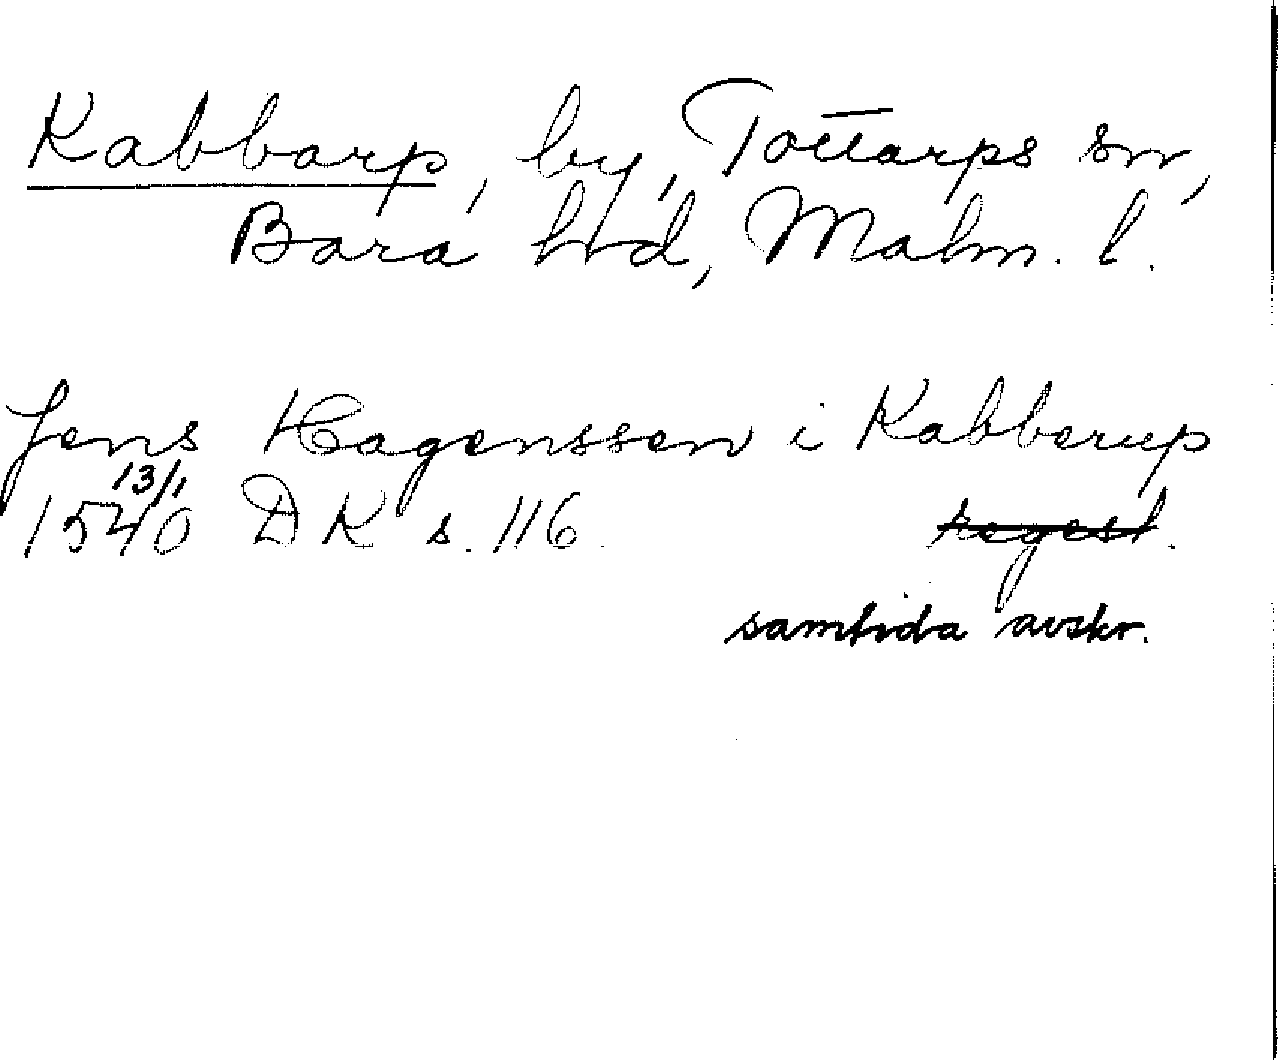 Kabbarp, by, Tottarps sn,
Bara hd, Malm. l.
Jens Hagenssen i Kabberup
13/1
1540 DK s. 116. regest.
samtida avskr.